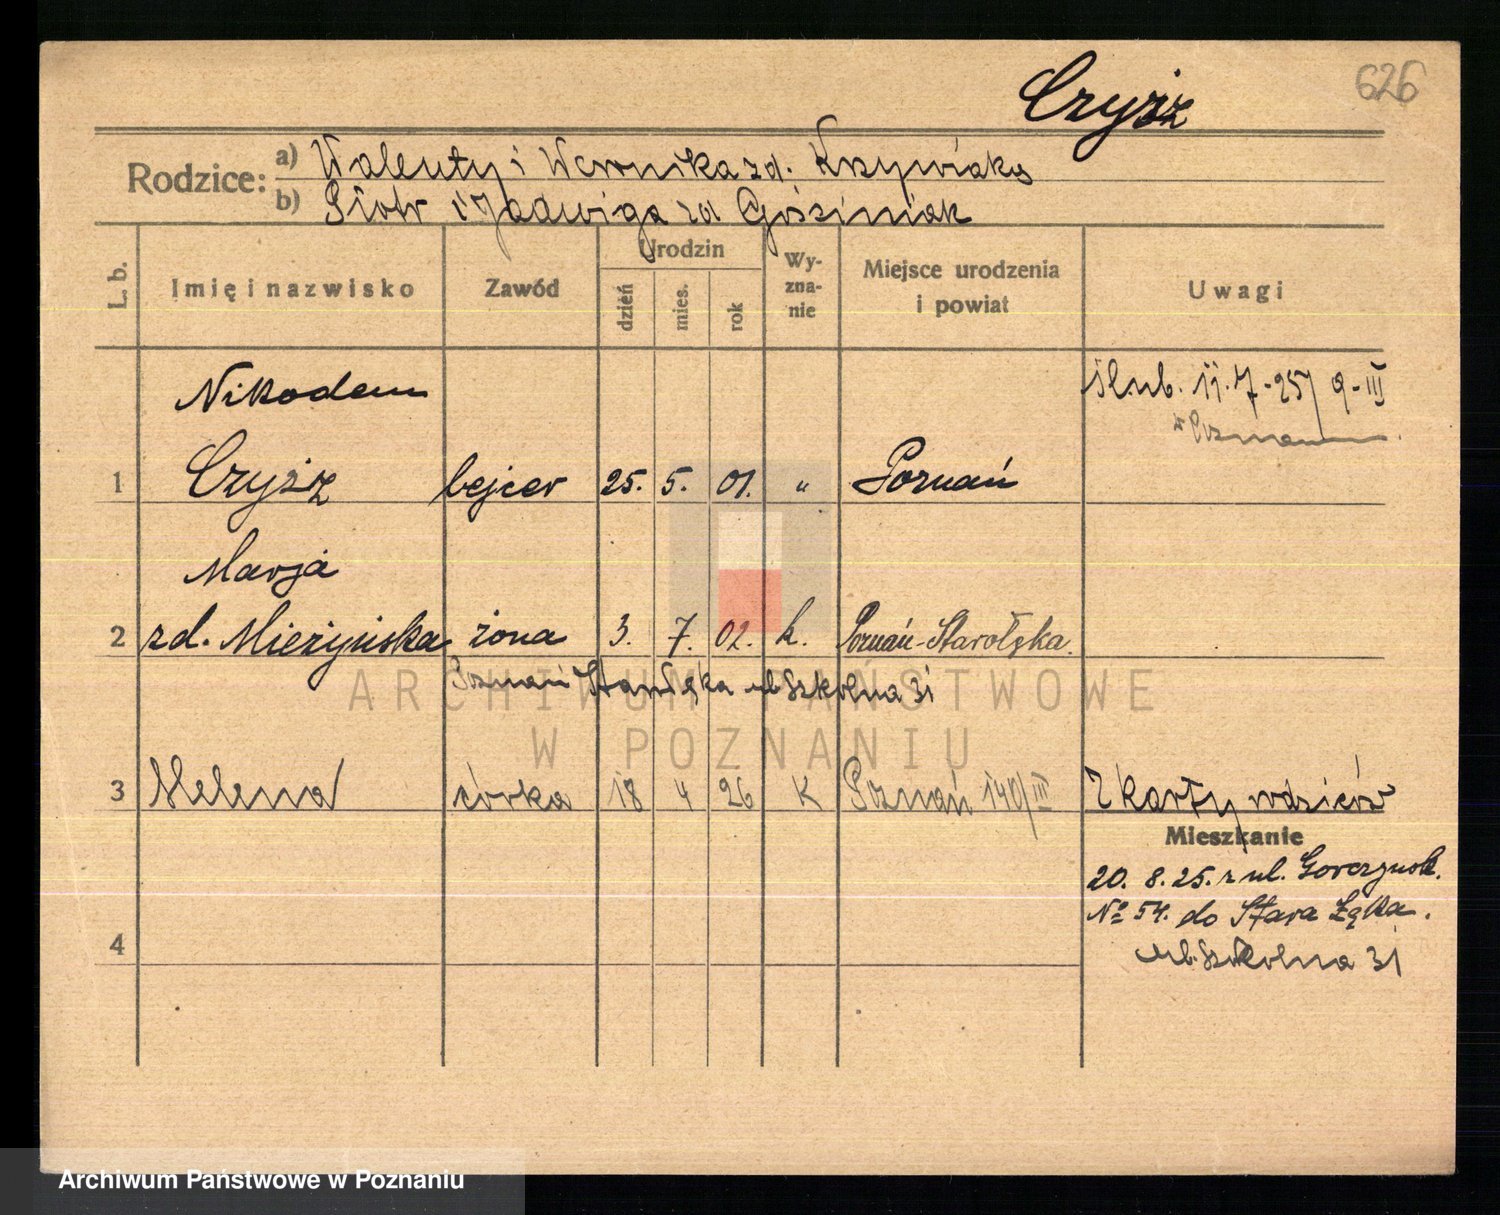 626
Czyżż
Rodzice: a) Walenty i Weronika zd. Krzywiaks
b) Piotr i Jadwiga zd Gościniak
L. b. Imię i nazwisko Zawód Urodzin dzień mies. rok Wy-zna-nie Miejsce urodzenia i powiat Uwagi
Nikodem ślub. 11.7.25 9-III
w Poznaniu
1 Czyżż bejcer 25. 5. 01. " Poznań
Marja
2 zd. Mieżyńska żona 3. 7. 02. k. Poznań-Starołęka.
Poznań Starołęka ul Szkolna 31
3 Helena córka 18 4 26 K Poznań 140/III Z karty rodziców
Mieszkanie
20. 8. 25. z ul. Gorczyńsk.
№ 54. do Stara Łęka.
4
ul. Szkolna 31
ARCHIWUM PAŃSTWOWE
W POZNANIU
Archiwum Państwowe w Poznaniu